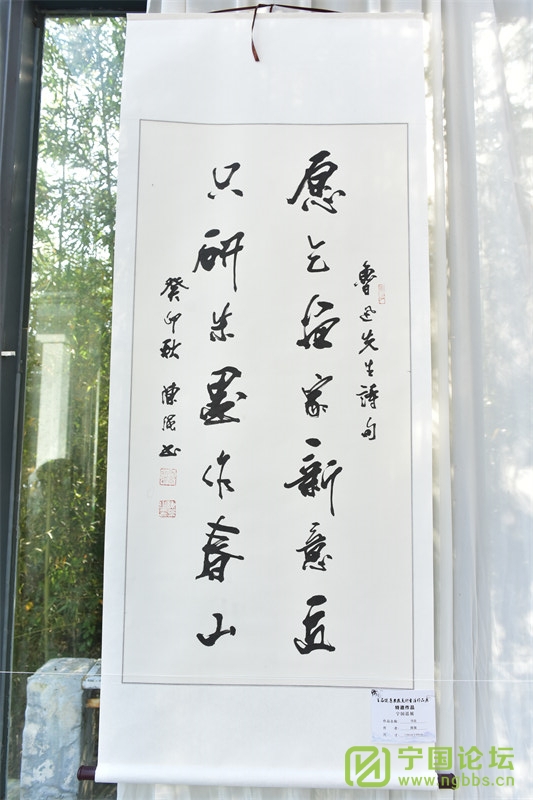 魯迅先生詩句
愿乞画家新意匠
只研朱墨作春山
癸卯秋 陈
特邀作品
宁国论坛
www.ngbbs.cn